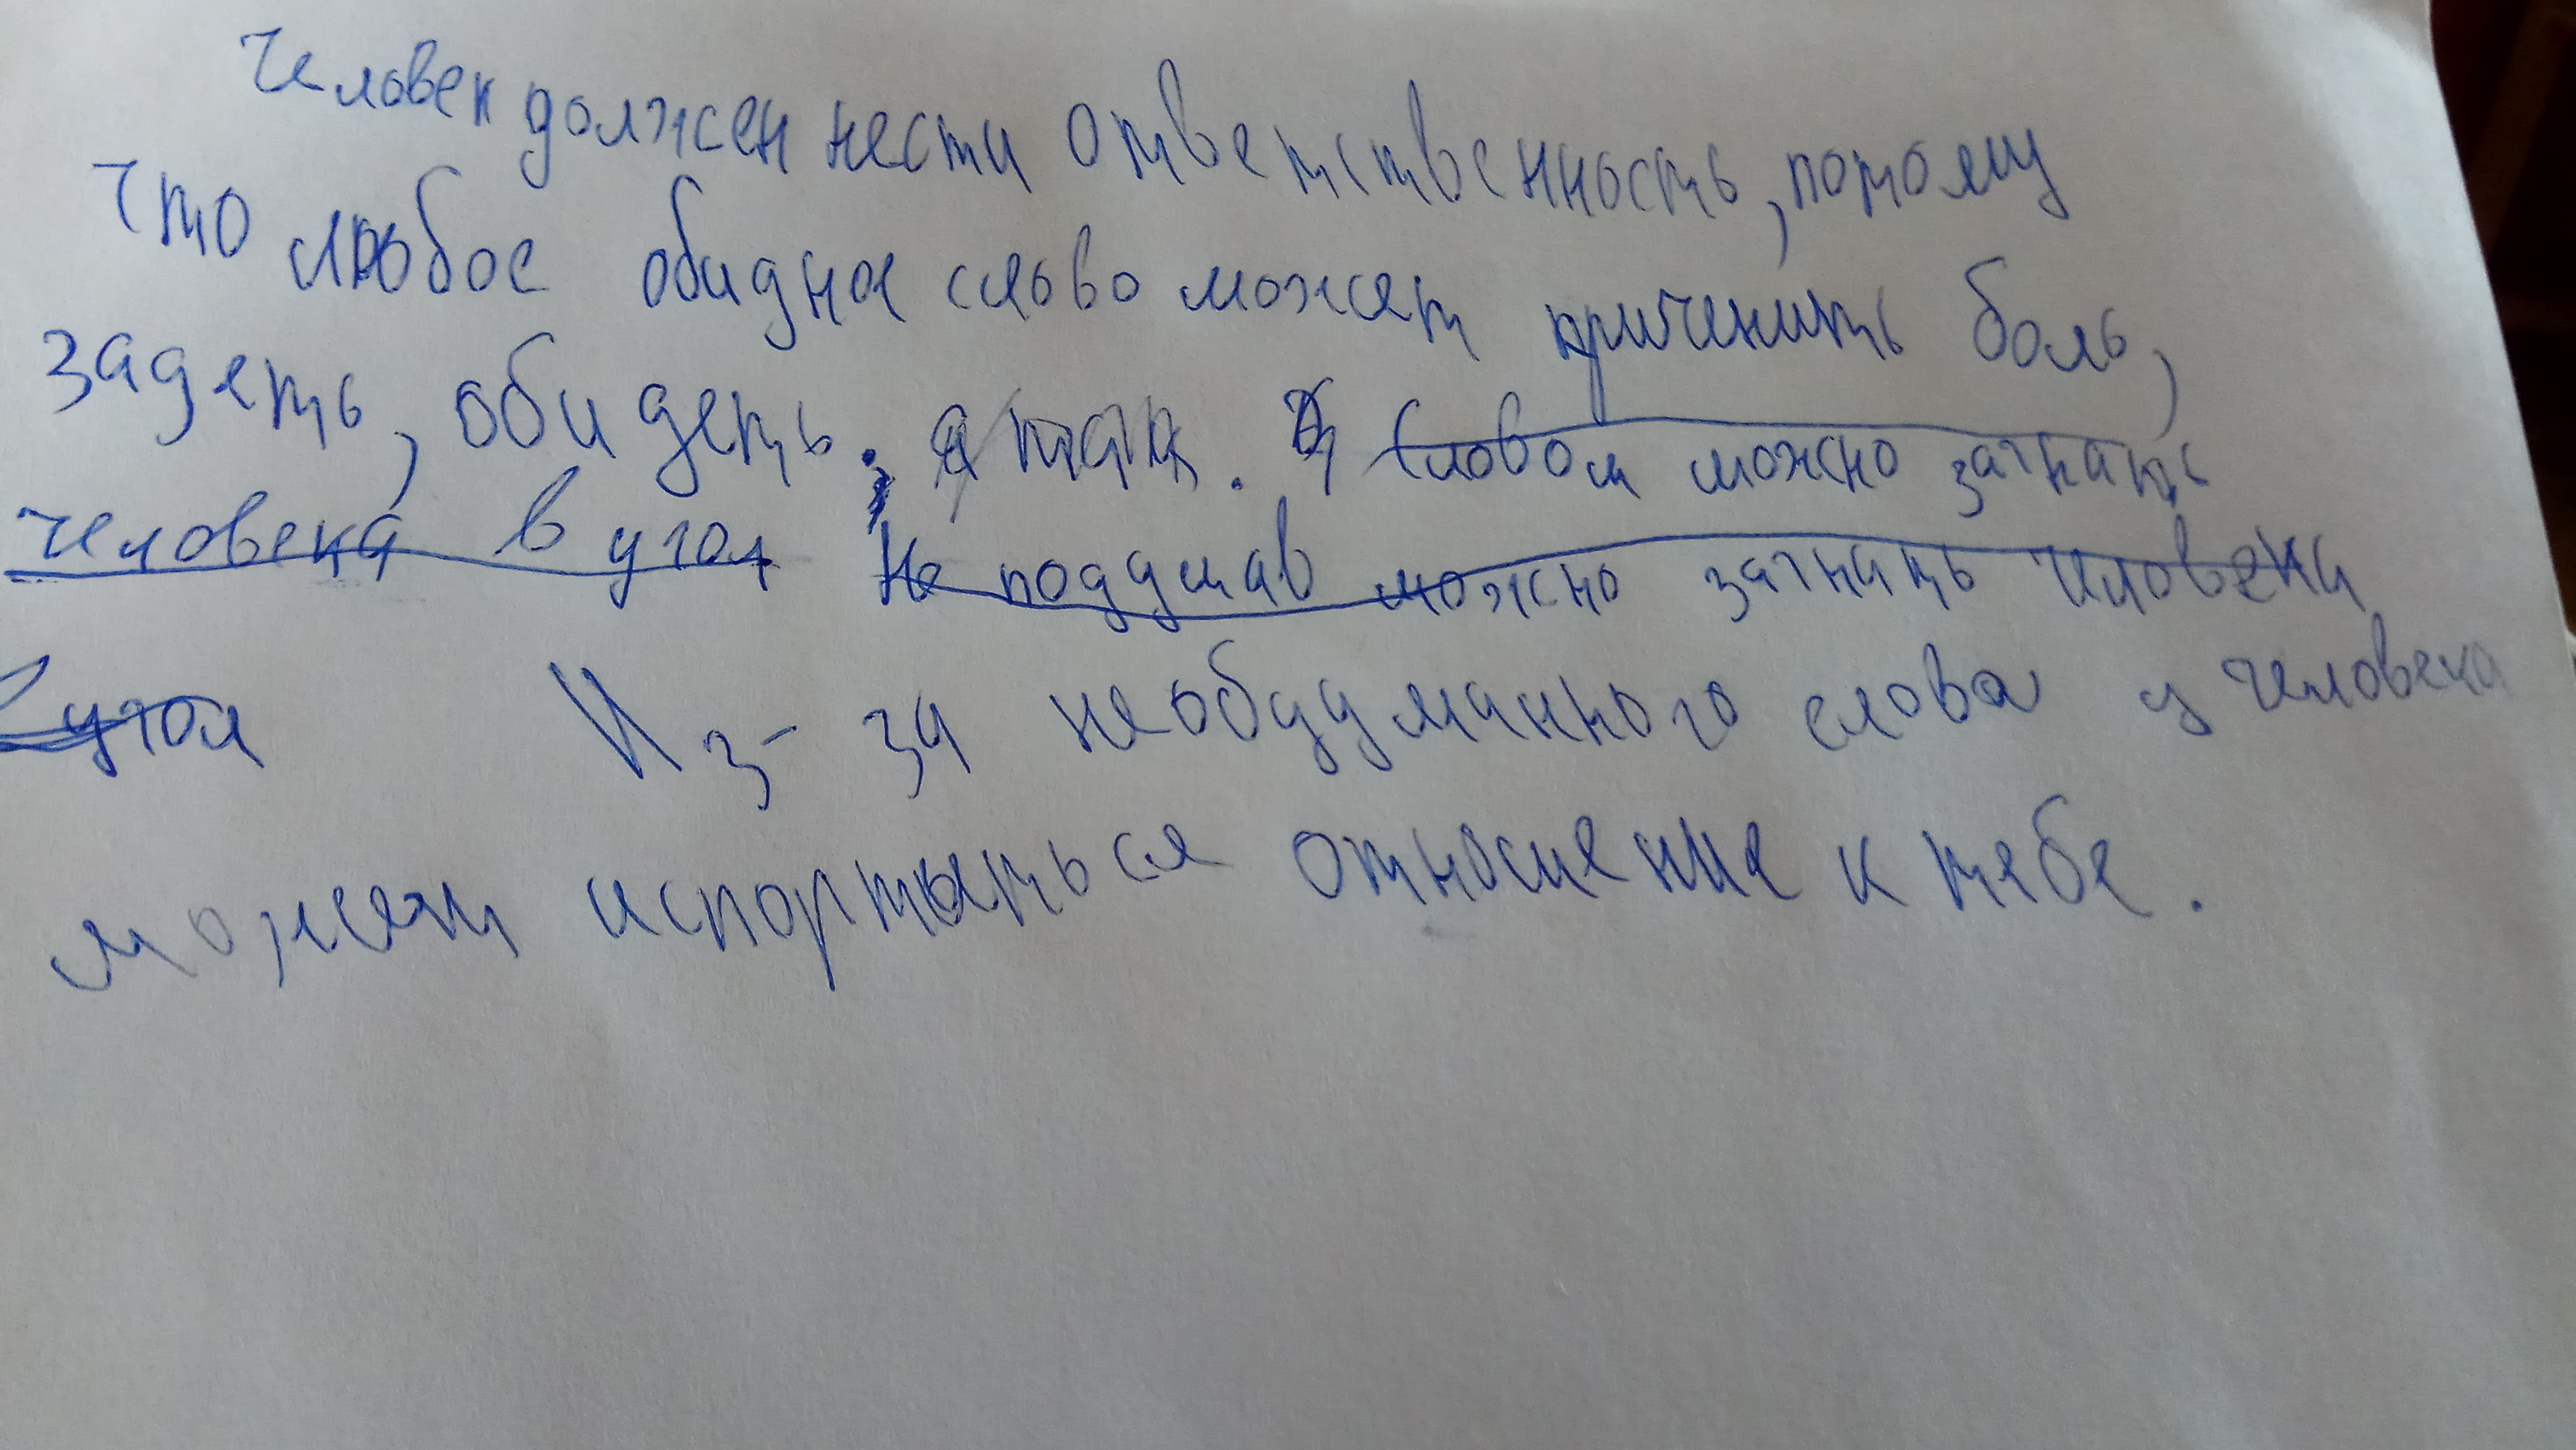 Человек должен нести ответственность, потому
что любое обидное слово может приченить боль,
задеть, обидеть. Словом можно загнать
человека в угол Не подумав можно загнать человека
угол Из-за необдуманного слова у человека
может испортиться отношение к тебе.